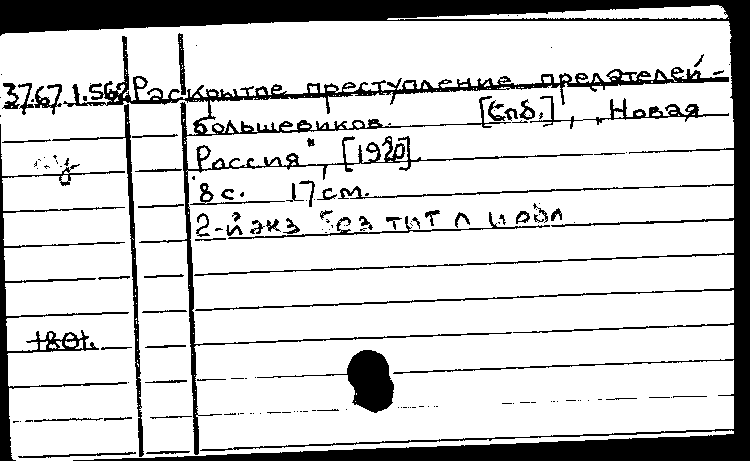 37.67.1.562 Раскрытое преступление предателей-
большевиков. [Спб.], „Новая
Россия", [1920].
8 с. 17 см.
2-й экз без тит л и обл